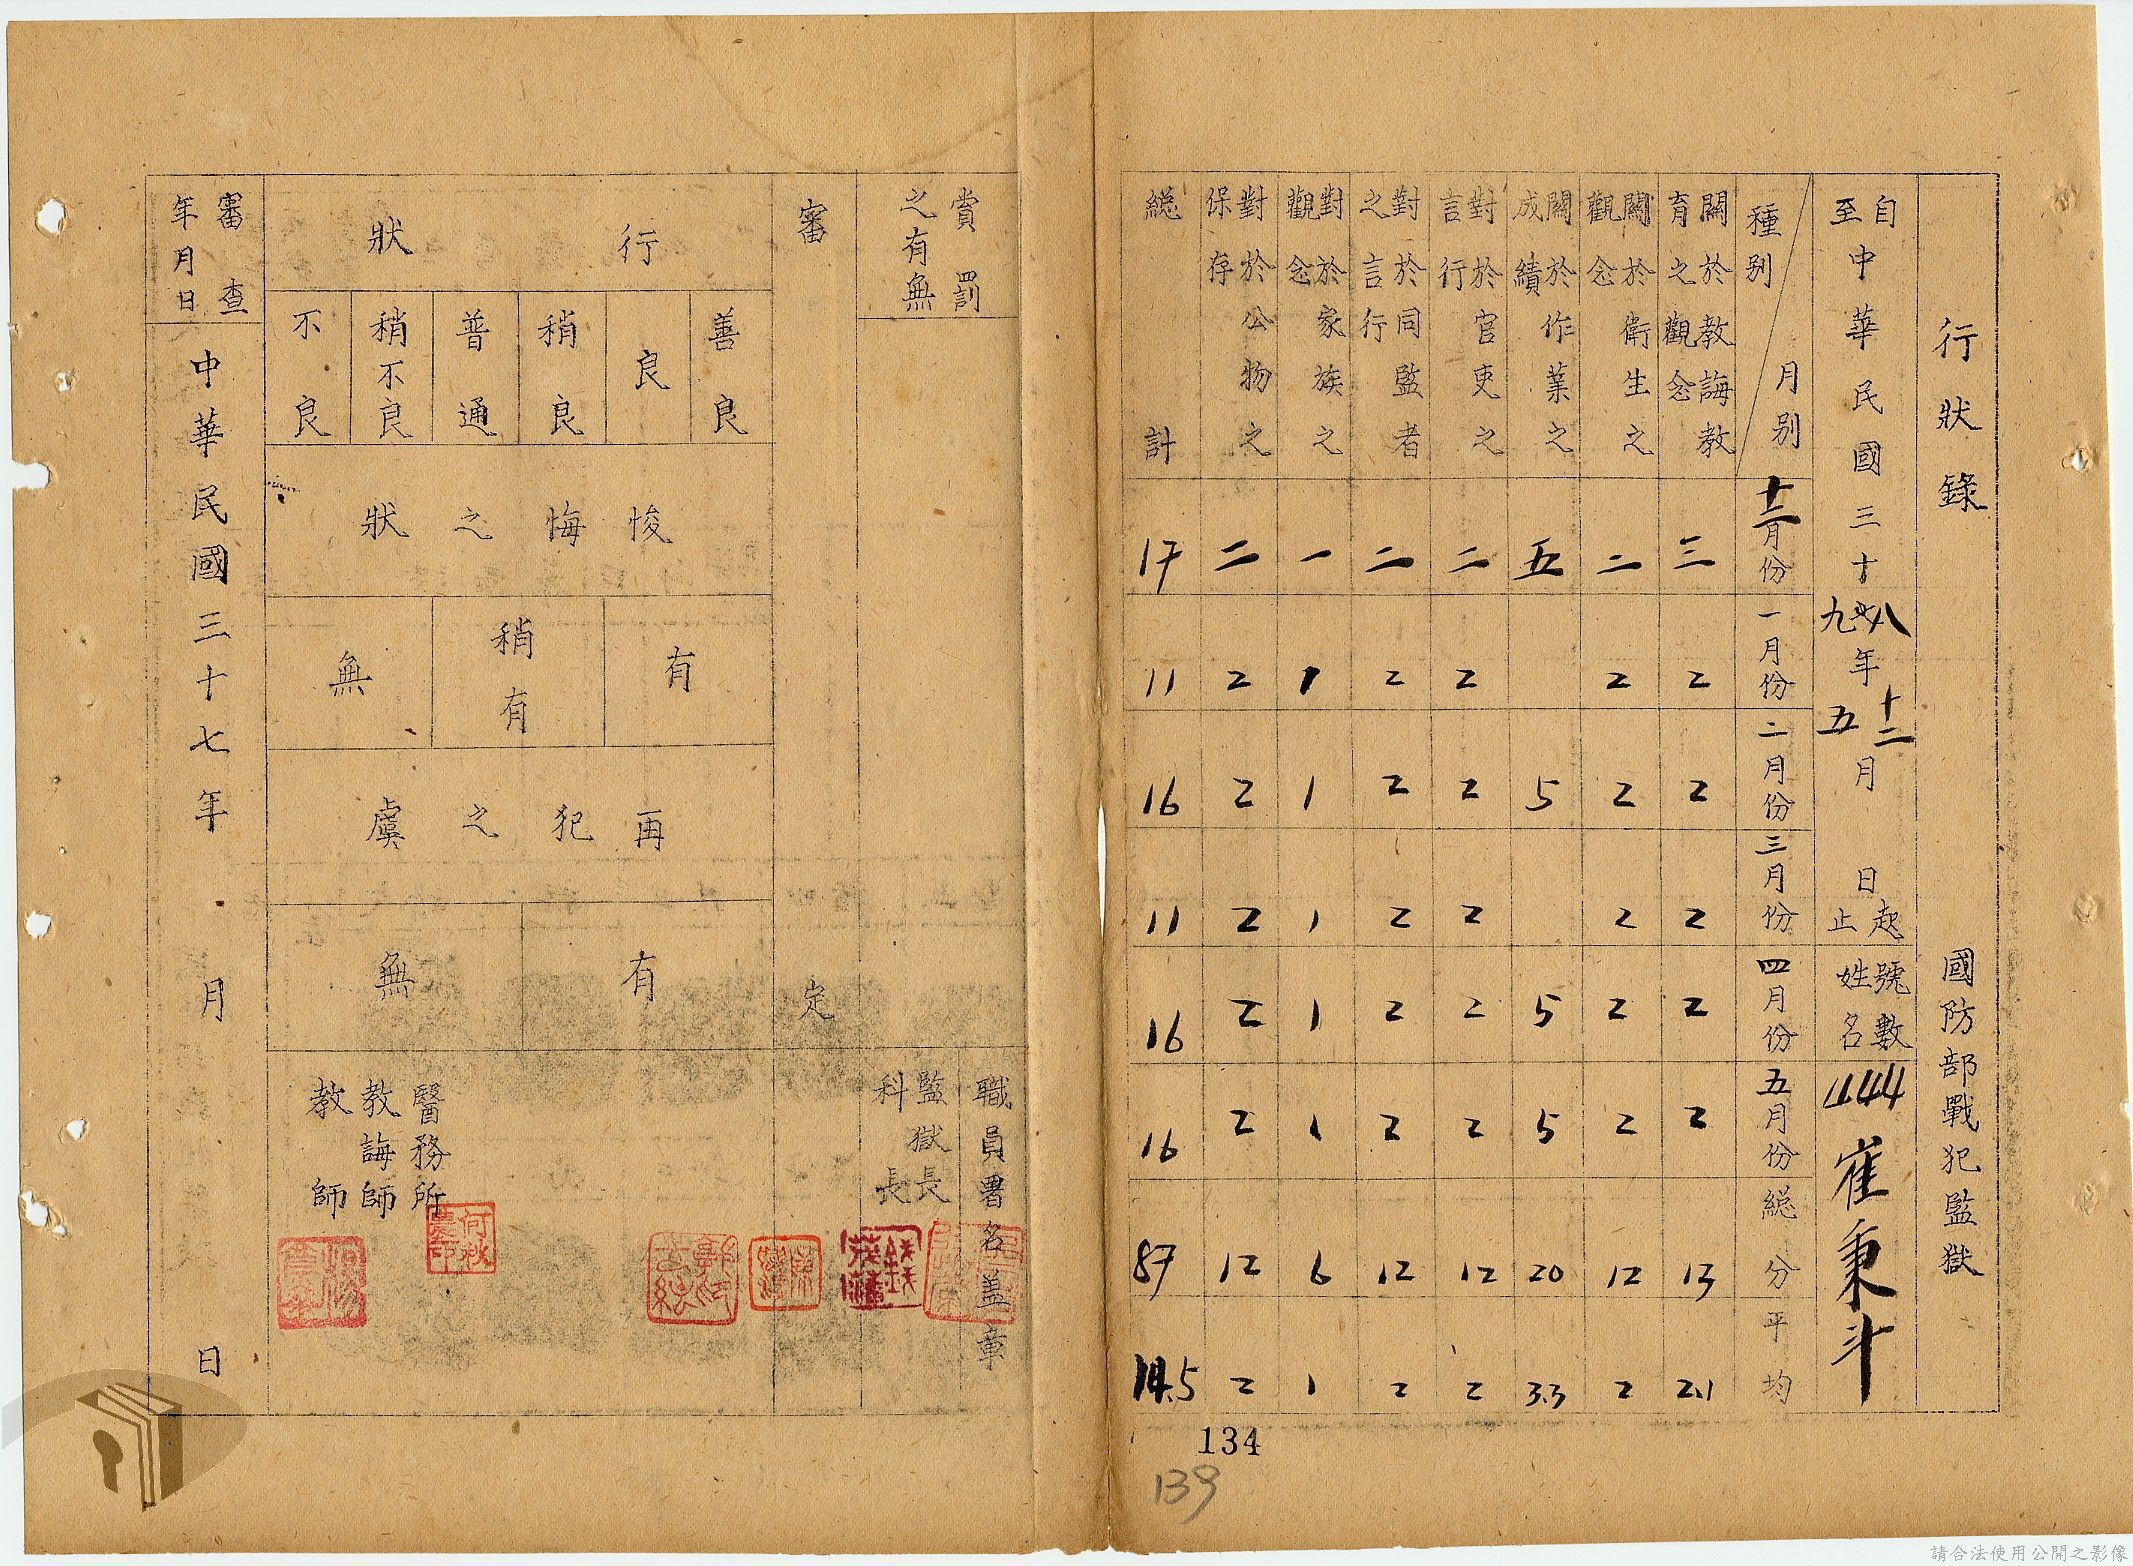 行狀錄 國防部戰犯監獄
自至中華民國三十八九年十二五月 日起止
號數姓名 崔秉斗
種別 月別 十二月份 一月份 二月份 三月份 四月份 五月份 總分 平均
關於教誨教育之觀念 三 2 2 2 2 2 13 2.1
關於衛生之觀念 二 2 2 2 2 2 12 2
關於作業之成績 五 5 5 5 20 3.3
對於官吏之言行 二 2 2 2 2 2 12 2
對於同監者之言行 二 2 2 2 2 2 12 2
對於家族之觀念 一 1 1 1 1 1 6 1
對於公物之保存 二 2 2 2 2 2 12 2
總計 17 11 16 11 16 16 87 14.5
134
139
賞罰之有無
職員署名蓋章
監獄長
科長
審定
行狀
善良
良
稍良
普通
稍不良
不良
悛悔之狀
有
稍有
無
再犯之虞
有
無
醫務所
教誨師
教師
審查年月日
中華民國三十七年 月 日
請合法使用公開之影像